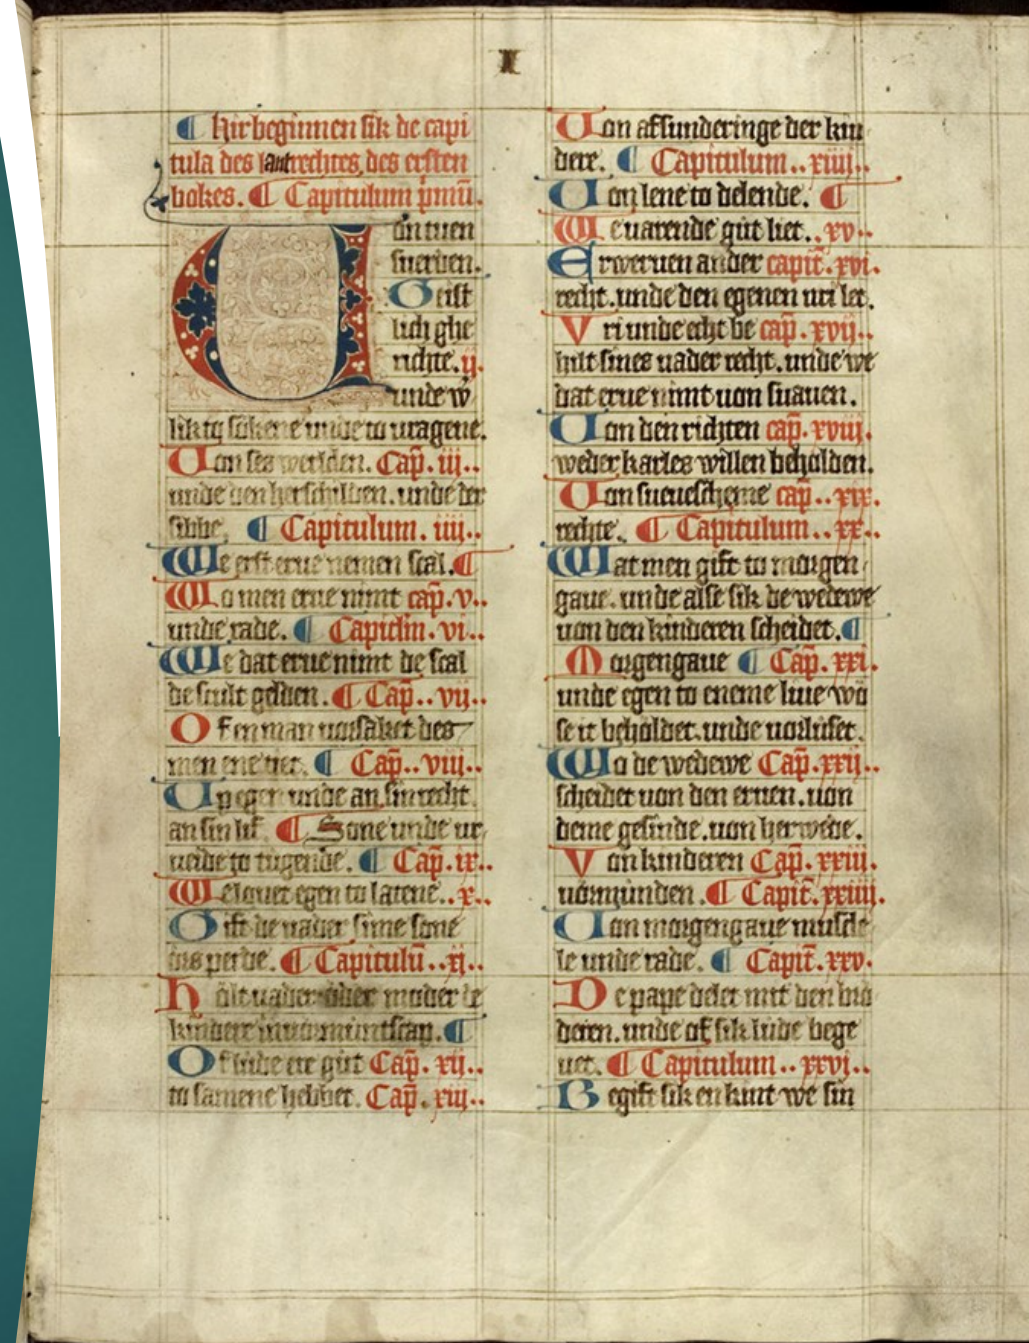 I
¶ Hir beginnen sik de capi
tula des lantrechtes des ersten
bokes. ¶ Capitulum p̄mū.
Uan tuen
suerden.
Geist
lich ghe
richte. ij.
unde w̄
lik to sokene unde to vragene.
Uon ses werlden. Cap̄. iii..
unde den herschilden. unde der
sibbe. ¶ Capitulum. iiii..
We erst erue nemen scal. ¶
Wo men erue nimt cap̄. v..
unde rade. ¶ Capitlm̄. vi..
We dat erue nimt de scal
de scult gelden. ¶ Cap̄.. vij..
Of en man vorsaket des
men ene tiet. ¶ Cap̄.. viij..
Up egen unde an sin recht
an sin lif. ¶ Sone unde ur
veide to tugende. ¶ Cap̄. ix..
We louet egen to latene.. x..
Gift de vader sime sone
ors perde. ¶ Capitulū.. xi..
Holt vader oder muder de
kindere in vormuntscap. ¶
Of lude ere gut Cap̄. xij..
to samene hebbet. Cap̄. xiij..
Uon afsunderinge der kin
dere. ¶ Capitulum.. xiiij..
Uon lene to delende. ¶
We uarende gut liet.. xv..
Erweruen ander capit̄. xvi.
recht. unde den egenen vri let.
Vri unde echt be cap̄. xvij..
hilt sines vader recht. unde we
dat erue nimt von suauen.
Uon den richten cap̄. xviij.
weder karles willen beholden.
Uon sueuescheme cap̄.. xix.
rechte. ¶ Capitulum.. xx..
Wat men gift to morgen
gaue. unde alse sik de wedewe
uon den kinderen scheidet. ¶
Morgengaue ¶ Cap̄. xxi.
unde egen to eneme liue wo
se it beholdet. unde vorluset.
Wo de wedewe Cap̄. xxij..
scheidet uon den eruen. uon
deme gesinde. uon herwede.
Von kinderen Cap̄. xxiii.
vormunden. ¶ Capit̄. xxiiij.
Uan morgengaue musde
le unde rade. ¶ Capit̄. xxv.
De pape delet mit den bro
deren. unde of sik lude bege
uet. ¶ Capitulum.. xxvi..
Begift sik en kint we sin